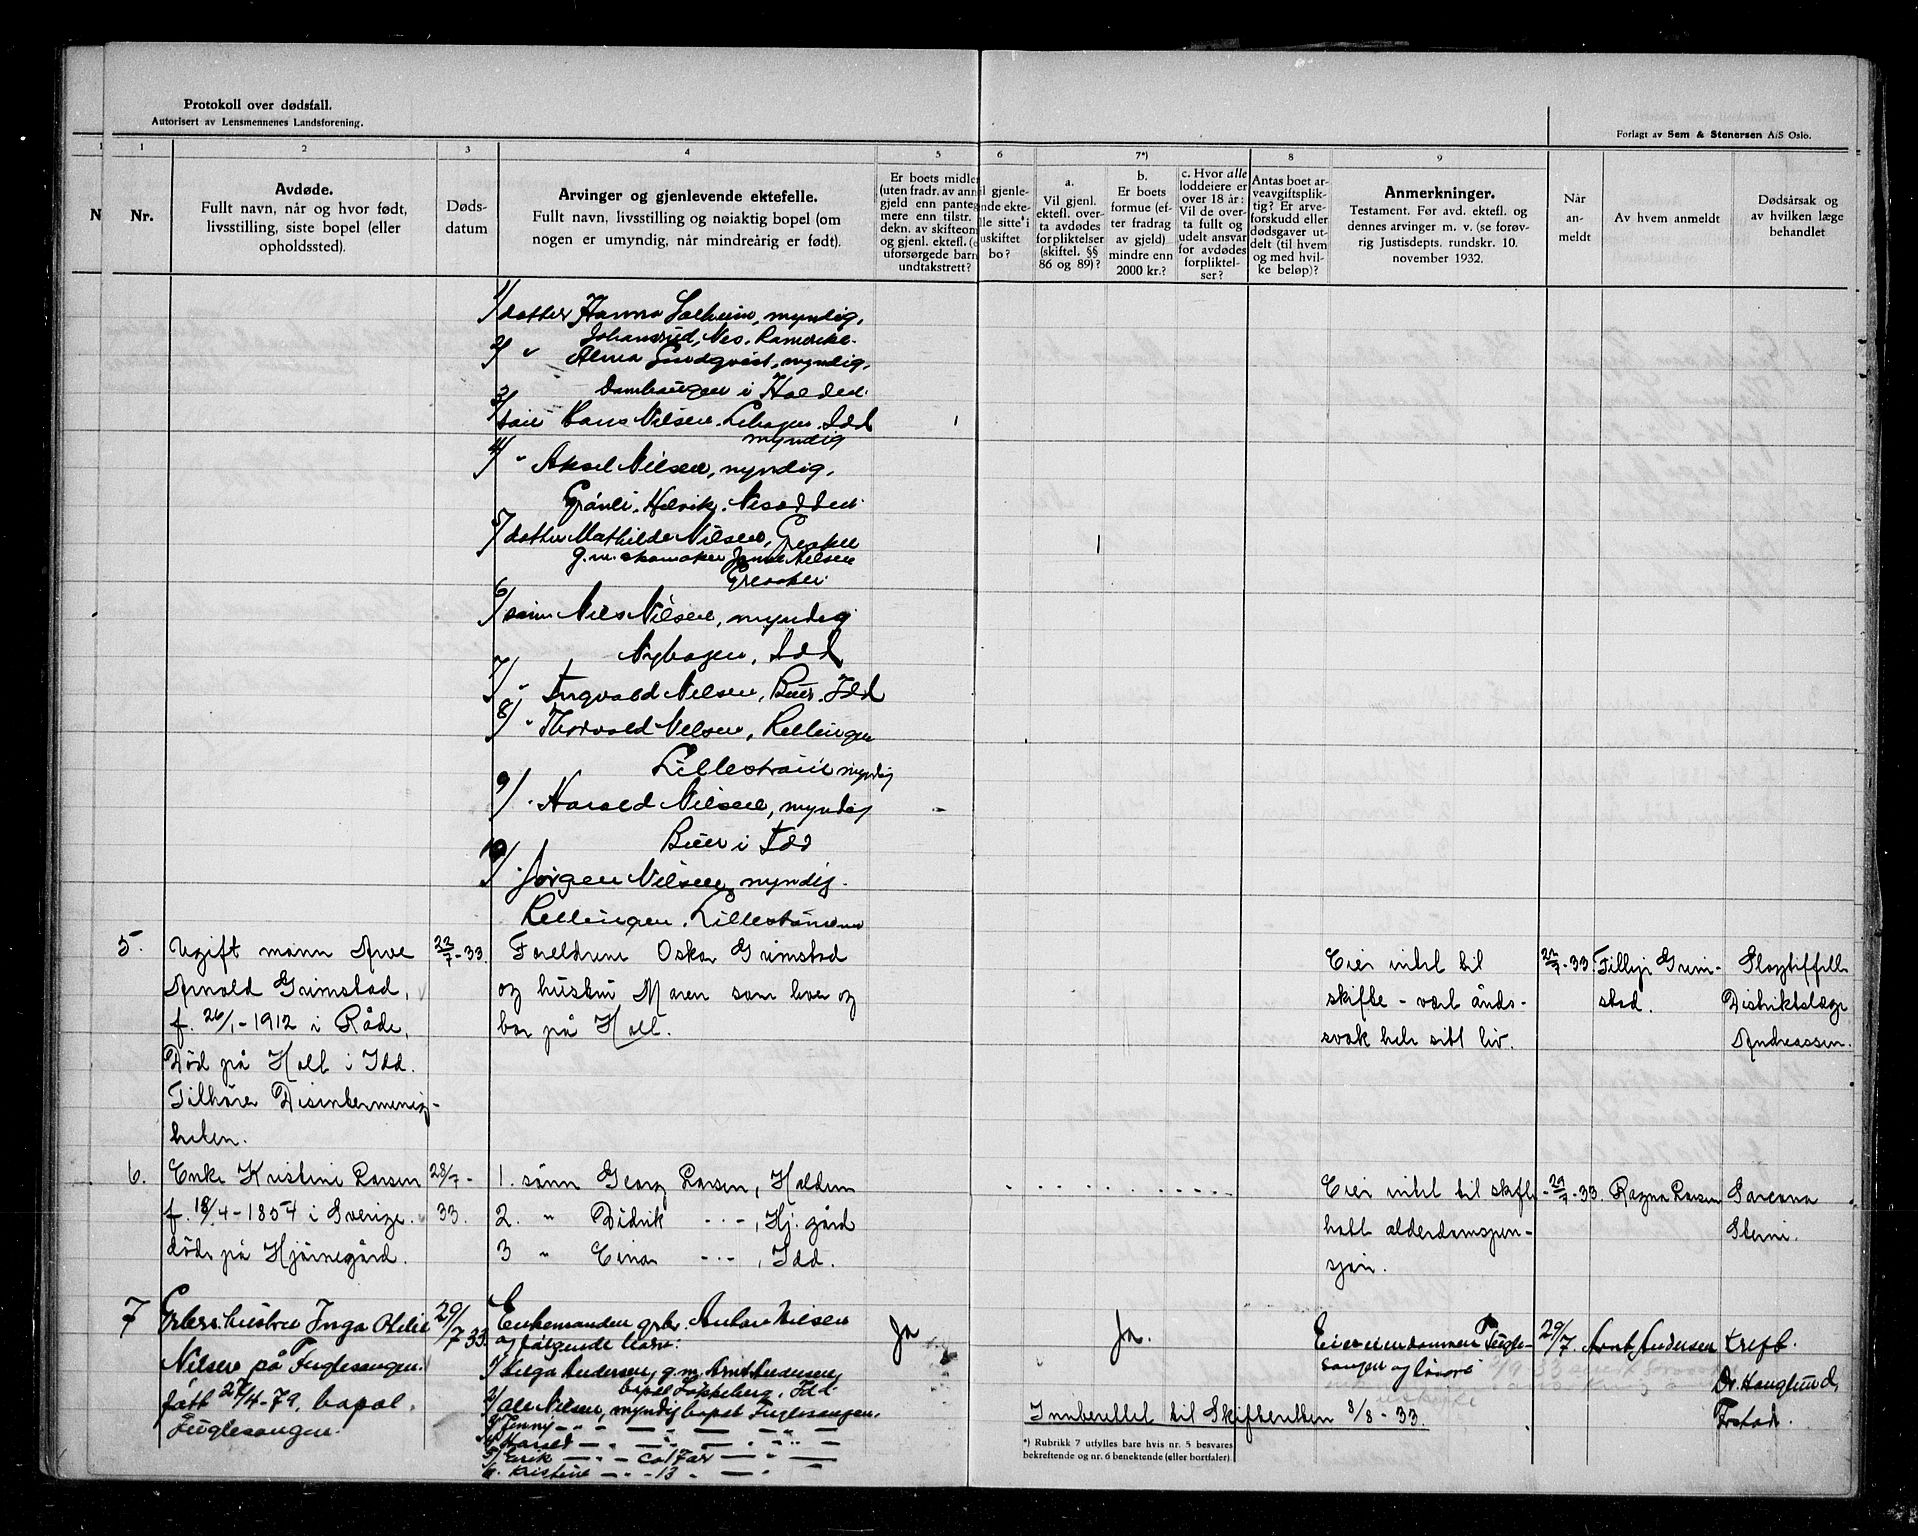 Protokoll over dødsfall.
Autorisert av Lensmennenes Landsforening.
Forlagt av Sem & Stenersen A/S Oslo.
1 1 2 3 4 5 6 7*) 8 9
N
Nr.
Avdøde.
Fullt navn, når og hvor født,
livsstilling, siste bopel (eller
opholdssted).
Døds-
datum
Arvinger og gjenlevende ektefelle.
Fullt navn, livsstilling og nøiaktig bopel (om
nogen er umyndig, når mindreårig er født).
Er boets midler
(uten fradr. av ann
gjeld enn panteg
mere enn tilstr.
dekn. av skifteom
og gjenl. ektef. (e
uforsørgede barn
undtakstrett?
il gjenle-
nde ekte-
lle sitte i
uskiftet
bo?
a.
Vil gjenl.
ektefl. over-
ta avdødes
forpliktelser
(skiftel. §§
86 og 89)?
b.
Er boets
formue (ef-
ter fradrag
av gjeld)
mindre enn
2000 kr.?
c. Hvor alle
loddeiere er
over 18 år:
Vil de over-
ta fullt og
udelt ansvar
for avdødes
forpliktel-
ser?
Antas boet ar-
veavgiftsplik-
tig? Er arve-
forskudd eller
dødsgaver ut-
delt (til hvem
og med hvil-
ke beløp)?
Anmerkninger.
Testament. Før avd. ektefl. og
dennes arvinger m. v. (se forøv-
rig Justisdepts. rundskr. 10.
november 1932.
Når
an-
meldt
Av hvem anmeldt
Dødsårsak og
av hvilken læge
behandlet
1/ datter Hanna Solheim, myndig,
Johansrud, Nes, Romerike.
2/ " Alma Lindqvist, myndig,
Damhaugen i Halden.
3/ søn Hans Nilsen, Lihagen, Idd
myndig
4/ " Aksel Nilsen, myndig,
Grönli, Helvik, Nesodden
5/ datter Mathilde Nilsen, Greaker
g.m. skomaker Nilsen
Greaker
6/ sönn Nils Nilsen, myndig
Nyhagen, Idd
7/ " Ingvald Nilsen, Buer, Idd
8/ " Thorvald Nilsen, Kellingen
Lilleström myndig
9/ " Harald Nilsen, myndig
Buer i Idd
10/ " Jörgen Nilsen, myndig.
Kellingen, Lilleström
5. Ugift mann Arve
Arnold Grimstad,
f. 26/1-1912 i Råde,
Död på Holt i Idd.
Tilhörer Dissentermenig-
heten.
22/7-33.
Foreldrene Oskar Grimstad
og hustru Maren som lever og
bor på Holt.
Eier intet til
skifte - vært ånds-
svak hele sitt liv.
22/7-33
Grim-
stad.
Slagtilfelle
Distriktslæge
Andreassen.
6. Enke Kristine Larsen
f. 18/4-1854 i Sverige.
döde på Hjörnegård.
28/7-
33.
1. sönn Georg Larsen, Halden
2. " Didrik -"-, Hj.gård
3 " Einar -"-, Idd.
Eier intet til skifte
hatt alderdomspen-
sjon.
29/7-33
Ragna Larsen
Sarcoma
Sterni.
7 Gbrs. hustru Inga Otilie
Nilsen på Fuglesangen
født 27/4-79, bopæl
Fuglesangen.
29/7 33.
Enkemanden gbr. Anton Nilsen
og følgende barn:
1/ Helga Andersen, g.m. Arnt Andersen,
bopæl Lökkeberg, Idd.
2/ Ole Nilsen, myndig bopæl Fuglesangen.
3/ Jenny -"- -"-
4/ Harald -"- -"-
5/ Erik -"- ca 17 år -"-
6. Kristine -"- 13 -"-
Ja
Ja.
Innberettet til Skifteretten 8/8-33.
Eier eiendommen Fugle-
sangen og
2/9 33
29/7
Arnt Andersen
Kreft.
Dr. Hauglund,
*) Rubrikk 7 utfylles bare hvis nr. 5 besvares
bekreftende og nr. 6 benektende (eller bortfaller).